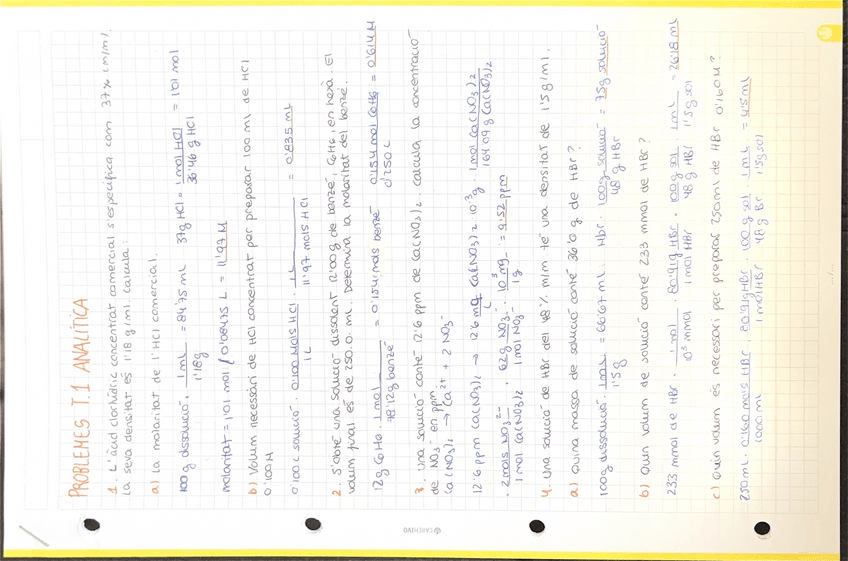 PROBLEMES T.1 ANALÍTICA
1. L'àcid clorhídric concentrat comercial s'especifica com 37% (m/m).
la seva densitat és 1'18 g/ml. Calcula:
a) la molaritat de l'HCl comercial.
100g dissolució · 1mL / 1'18g = 84'75 mL 37g HCl · 1mol HCl / 36'46 g HCl = 1'01 mol
molaritat = 1'01 mol / 0'08475 L = 11'97 M
b) Volum necessari de HCl concentrat per preparar 100 ml de HCl
0'100M
0'100 L solució · 0'100 mols HCl / 1L · 1L / 11'97 mols HCl = 0'835 mL
2. S'obté una solució dissolent 12'00g de benzè, C6H6, en hexà. El
volum final és de 250.0 mL. Determina la molaritat del benzè.
12g C6H6 · 1mol / 78'12g benzè = 0'154 mols benzè 0'154 mol C6H6 / 0'250 L = 0'614M
3. Una solució conté 12'6 ppm de Ca(NO3)2 calcula la concentració
de NO3- en ppm
Ca(NO3)2 → Ca2+ + 2 NO3-
12'6 ppm Ca(NO3)2 → 12'6 mg Ca(NO3)2 / L · 10-3g · 1mol Ca(NO3)2 / 164'09 g Ca(NO3)2
· 2mols NO32- / 1mol Ca(NO3)2 · 62g NO3- / 1mol NO3- · 103mg / 1g = 9'52 ppm
4. Una solució de HBr del 48% m/m té una densitat de 1'5g/ml.
a) Quina massa de solució conté 36'0 g de HBr?
100g dissolució · 1mL / 1'5g = 66'67 mL. HBr · 100g solució / 48 g HBr = 75g solució
b) Quin volum de solució conté 233 mmol de HBr?
233 mmol de HBr · 1mol / 103 mmol · 80'91g HBr / 1mol HBr · 100g sol / 48 g HBr · 1mL / 1'5g sol = 26'18 mL
c) Quin volum és necessari per preparar 250ml de HBr 0'160M?
250mL · 0'160 mols HBr / 1000 ml · 80'91g HBr / 1mol HBr · 100g sol / 48 g Br · 1mL / 1'5g sol = 4'5 mL
CARCHIVO